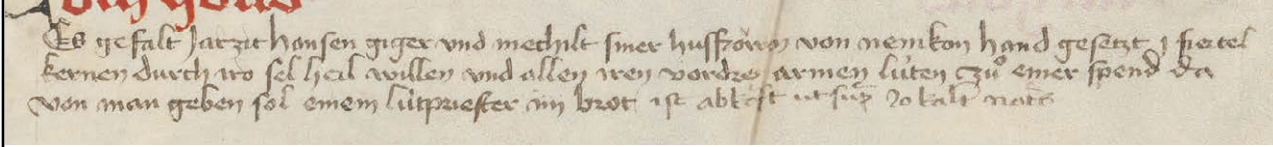 Es gefalt Jarzit hansen giger vnd mechilt siner husfrowen von nenikon hand gesetzt j fiertel
kernen durch iro sel heil willen vnd allen iren vordren armen lüten zuͦ einer spend da
von man geben sol einem lütpriester iiij brot ist abkofft ut sup